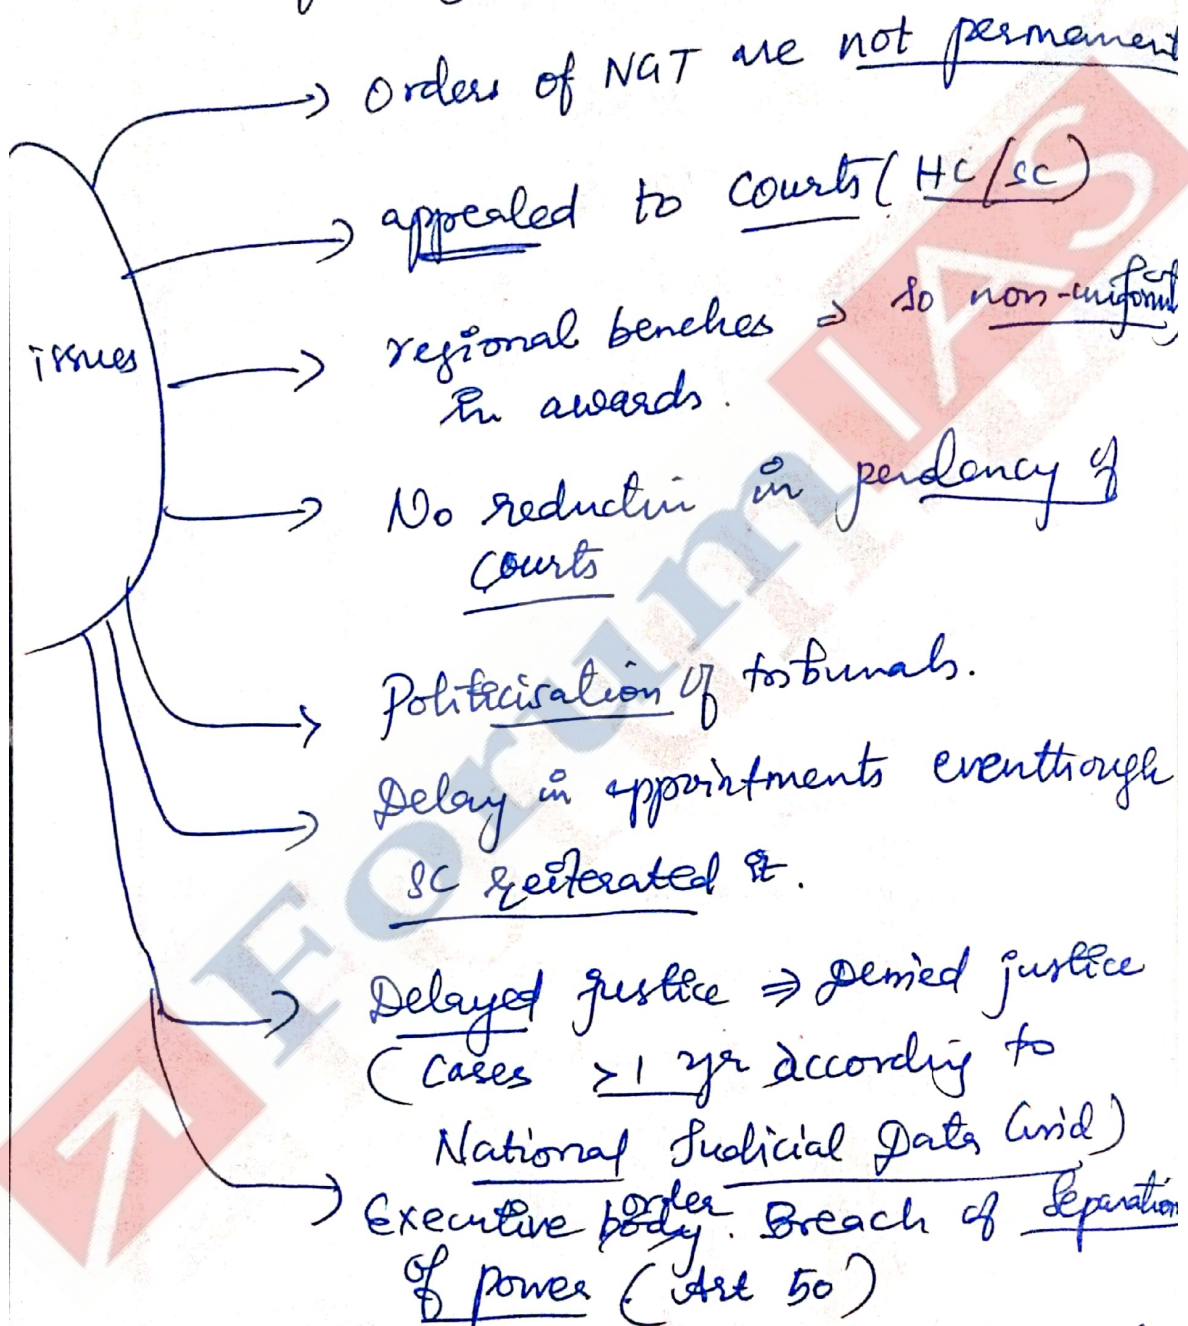 Orders of NGT are not permanent
appealed to courts (HC/SC)
issues
regional benches ⇒ so non-uniformity
in awards.
No reduction in pendency of
courts
Politicisation of tribunals.
Delay in appointments eventhough
SC reiterated it.
Delayed justice ⇒ Denied justice
(cases >1 yr according to
National Judicial Data Grid)
order
Executive body. Breach of Separation
of power (Art 50)
Forum IAS